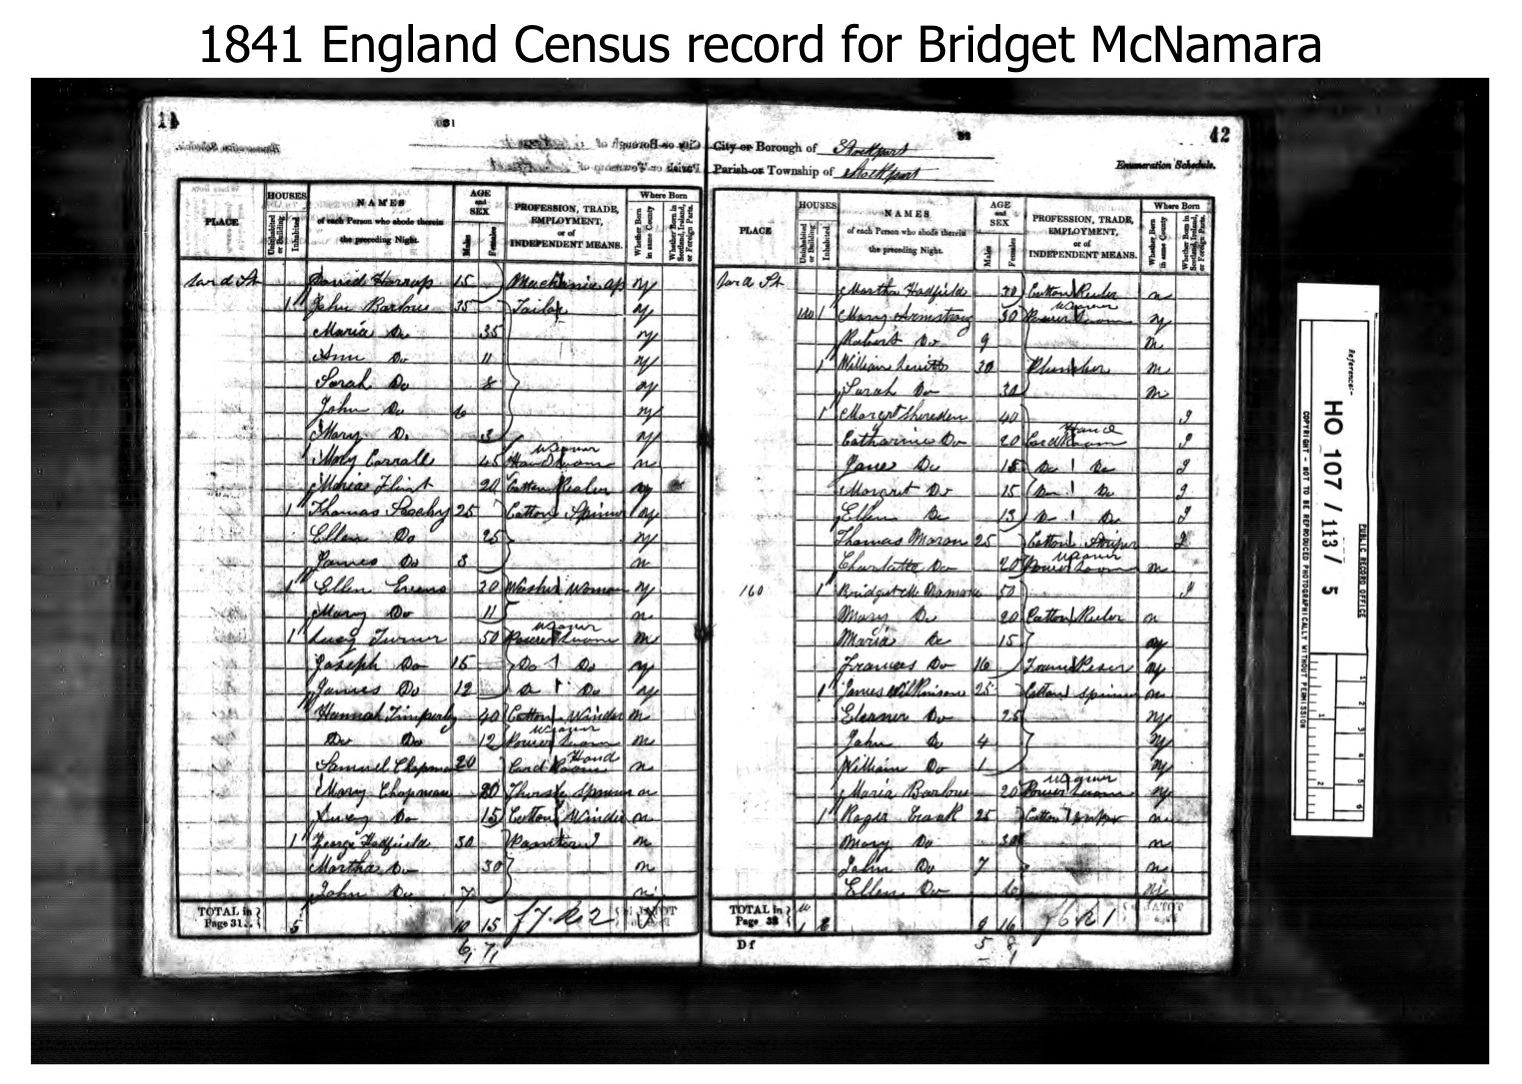 1841 England Census record for Bridget McNamara
31
City or Borough of
Parish or Township of
Enumeration Schedule.
PLACE
HOUSES
Uninhabited or Building
Inhabited
NAMES
of each Person who abode therein
the preceding Night.
AGE
and
SEX
Males
Females
PROFESSION, TRADE,
EMPLOYMENT,
or of
INDEPENDENT MEANS.
Where Born
Whether Born in same County
Whether Born in Scotland, Ireland, or Foreign Parts.
David Harrop 15 ny
1 John Barlow 35 Tailor ny
Maria Do 35 ny
Ann Do 11 ny
Sarah Do 8 ny
John Do 6 ny
Mary Do 3 ny
Mary Carrall 45 Hand Loom weaver n
Maria Flint 20 Cotton Reeler ny
1 Thomas 25 Cotton Spinner ny
Ellen Do 25 ny
James Do 3 n
1 Ellen Evans 30 Washer Woman ny
Mary Do 11 n
1 Lucy Turner 50 Power Loom weaver n
Joseph Do 15 Do Do ny
James Do 12 Do Do ny
Hannah Timperley 40 Cotton Winder n
Do Do 12 Power Loom weaver n
Samuel Chapman 20 Card Room Hand n
Mary Chapman 20 Spinner n
Do 15 Cotton Winder n
1 George Hadfield 30 n
Martha Do 30 n
John Do 7 n
TOTAL in
Page 31
5 10 15
6 7
32
42
City or Borough of Stockport
Parish or Township of Stockport
Enumeration Schedule.
PLACE
HOUSES
Uninhabited or Building
Inhabited
NAMES
of each Person who abode therein
the preceding Night.
AGE
and
SEX
Males
Females
PROFESSION, TRADE,
EMPLOYMENT,
or of
INDEPENDENT MEANS.
Where Born
Whether Born in same County
Whether Born in Scotland, Ireland, or Foreign Parts.
Martha Hadfield 30 Cotton Reeler n
1 Mary Armstrong 30 Power Loom weaver ny
Robert Do 9 n
1 William 30 n
Sarah Do 30 n
1 Margrt Shereden 40 I
Catharine Do 20 Card Room Hand I
Jane Do 15 Do Do I
Margret Do 15 Do Do I
Ellen Do 13 Do Do I
Thomas Moran 25 Cotton I
Charlotte Do 20 Power Loom weaver n
160 1 Bridget McNamara 50 I
Mary Do 20 Cotton Reeler n
Maria Do 15 ny
Frances Do 16 ny
1 James Wilkinson 25 Cotton Spinner n
Eleaner Do 25 ny
John Do 4 ny
William Do 1 ny
Maria Barlow 20 Power Loom weaver ny
1 Roger 25 Cotton n
Mary Do 30 n
John Do 7 n
Ellen Do ny
TOTAL in
Page 32
9 16
5 8
D f
Reference:-
HO 107 / 113 / 5
PUBLIC RECORD OFFICE
COPYRIGHT - NOT TO BE REPRODUCED PHOTOGRAPHICALLY WITHOUT PERMISSION